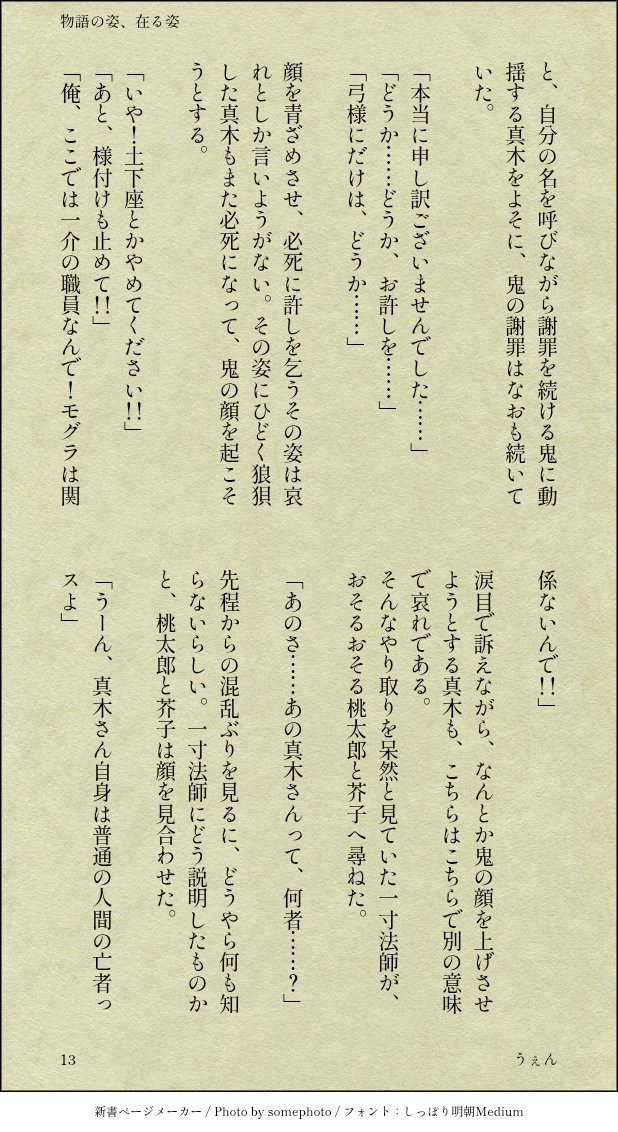 物語の姿、在る姿
と、自分の名を呼びながら謝罪を続ける鬼に動
揺する真木をよそに、鬼の謝罪はなおも続いて
いた。
「本当に申し訳ございませんでした……」
「どうか……どうか、お許しを……」
「弓様にだけは、どうか……」
顔を青ざめさせ、必死に許しを乞うその姿は哀
れとしか言いようがない。その姿にひどく狼狽
した真木もまた必死になって、鬼の顔を起こそ
うとする。
「いや！土下座とかやめてください!!」
「あと、様付けも止めて!!」
「俺、ここでは一介の職員なんで！モグラは関
係ないんで!!」
涙目で訴えながら、なんとか鬼の顔を上げさせ
ようとする真木も、こちらはこちらで別の意味
で哀れである。
そんなやり取りを呆然と見ていた一寸法師が、
おそるおそる桃太郎と芥子へ尋ねた。
「あのさ……あの真木さんって、何者……？」
先程からの混乱ぶりを見るに、どうやら何も知
らないらしい。一寸法師にどう説明したものか
と、桃太郎と芥子は顔を見合わせた。
「うーん、真木さん自身は普通の人間の亡者っ
スよ」
13
うぇん
新書ページメーカー / Photo by somephoto / フォント：しっぽり明朝Medium